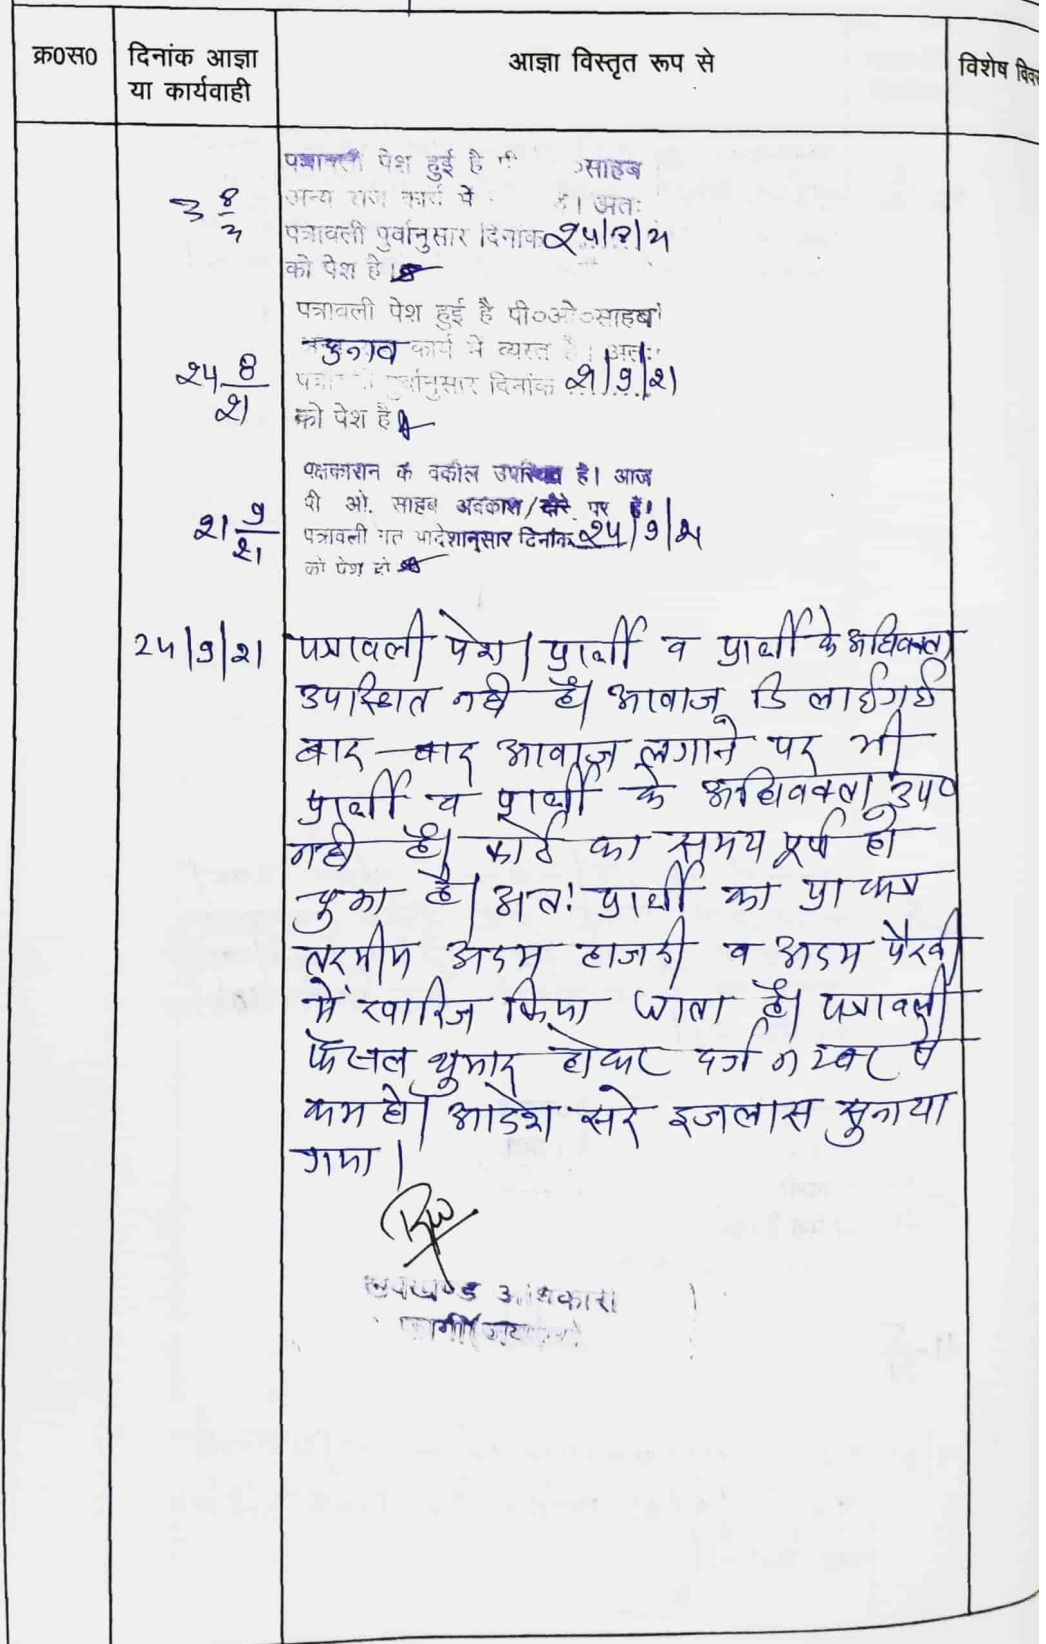 क्र0स0 दिनांक आज्ञा या कार्यवाही आज्ञा विस्तृत रूप से विशेष
पत्रावली पेश हुई है साहब
अन्य राज कार्य में है। अतः
3 8/21 पत्रावली पुर्वानुसार दिनांक
को पेश हो।
पत्रावली पेश हुई है पी०ओ०साहब
चुनाव कार्य में व्यस्त है। अतः
24 8/21 पुर्वानुसार दिनांक 21/9/21
को पेश हो
पक्षकारान के वकील उपस्थित है। आज
पी ओ. साहब अवकाश/दौरे पर है।
21 9/21 पत्रावली गत आदेशानुसार दिनांक 24/9/21
को पेश हो
24/9/21 पत्रावली पेश। प्रार्थी व प्रार्थी के अधिवक्ता
उपस्थित नही है। आवाज दिलाई गई
बार-बार आवाज लगाने पर भी
प्रार्थी व प्रार्थी के अधिवक्ता उप०
नही है। कोर्ट का समय पूर्ण हो
चुका है। अतः प्रार्थी का प्रा पत्र
तरमीम अदम हाजरी व अदम पैरवी
में खारिज किया जाता है। पत्रावली
फैसल शुमार होकर दर्ज नम्बर से
कम हो। आदेश सरे इजलास सुनाया
गया।
उपखण्ड अधिकारी